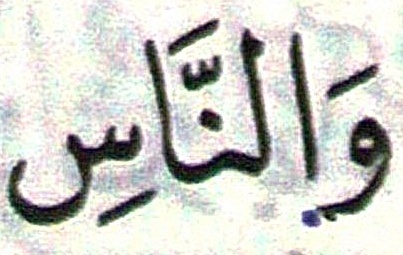 وَالنَّاسِ